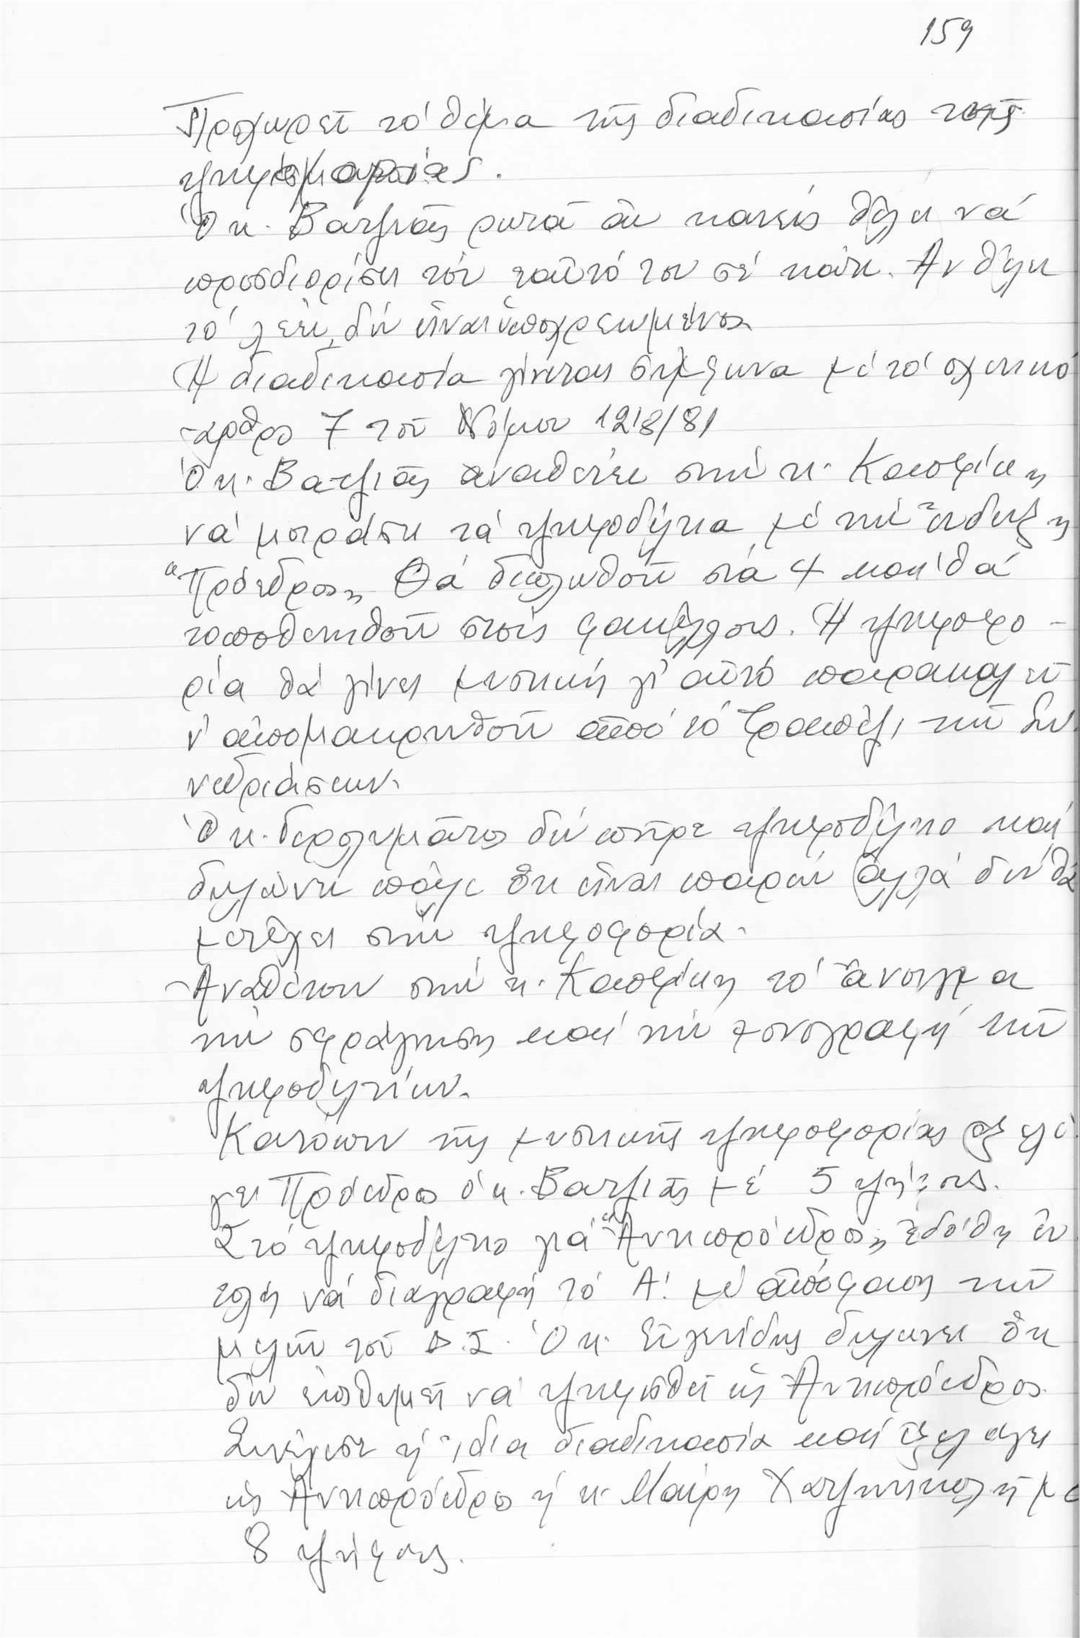 159
Προχωρεῖ τό θέμα τῆς διαδικασίας τῆς
ψηφοφορίας.
Ὁ κ. Βατζιᾶς ρωτᾶ ἄν κανείς θέλει νά
προσδιορίσει τόν ἑαυτό του σέ κάτι. Ἄν θέλει
τό λέει, δέν εἶναι ὑποχρεωμένος.
Ἡ διαδικασία γίνεται σύμφωνα μέ τό σχετικό
ἄρθρο 7 τοῦ Νόμου 128/81
Ὁ κ. Βατζιᾶς ἀναθέτει στήν κ. Καστρίκη
νά μοιράσει τά ψηφοδέλτια μέ τήν ἔνδειξη
"Πρόεδρος" Θά διπλωθοῦν στά 4 καί θά
τοποθετηθοῦν στούς φακέλλους. Ἡ ψηφοφο-
ρία θά γίνει μυστική γι' αὐτό παρακαλεῖ
ν' ἀπομακρυνθοῦν ἀπό τό τραπέζι τῶν Συ
νεδριάσεων.
Ὁ κ. δέν πῆρε ψηφοδέλτιο καί
δηλώνει πάλι ὅτι εἶναι παρών ἀλλά δέν θά
μετέχει στήν ψηφοφορία.
Ἀναθέτουν στήν κ. Καστρίκη τό ἄνοιγμα
τήν σφράγιση καί τήν μονογραφή τῶν
ψηφοδελτίων.
Κατόπιν τῆς μυστικῆς ψηφοφορίας ἐξελέ
γει Πρόεδρος ὁ κ. Βατζιᾶς μέ 5 ψήφους.
Στό ψηφοδέλτιο γιά "Ἀντιπρόεδρος" ἐδόθη ἐν
τολή νά διαγραφῆ τό Α! μέ ἀπόφαση τῶν
μελῶν τοῦ Δ.Σ. Ὁ κ. Εὐγενίδης δηλώνει ὅτι
δέν ἐπιθυμεῖ νά ψηφισθεῖ ὡς Ἀντιπρόεδρος.
Συνέχισε ἡ ἴδια διαδικασία καί ἐξελέγει
ὡς Ἀντιπρόεδρο ἡ κ. Μαίρη Χατζηνικολῆ μέ
8 ψήφους.